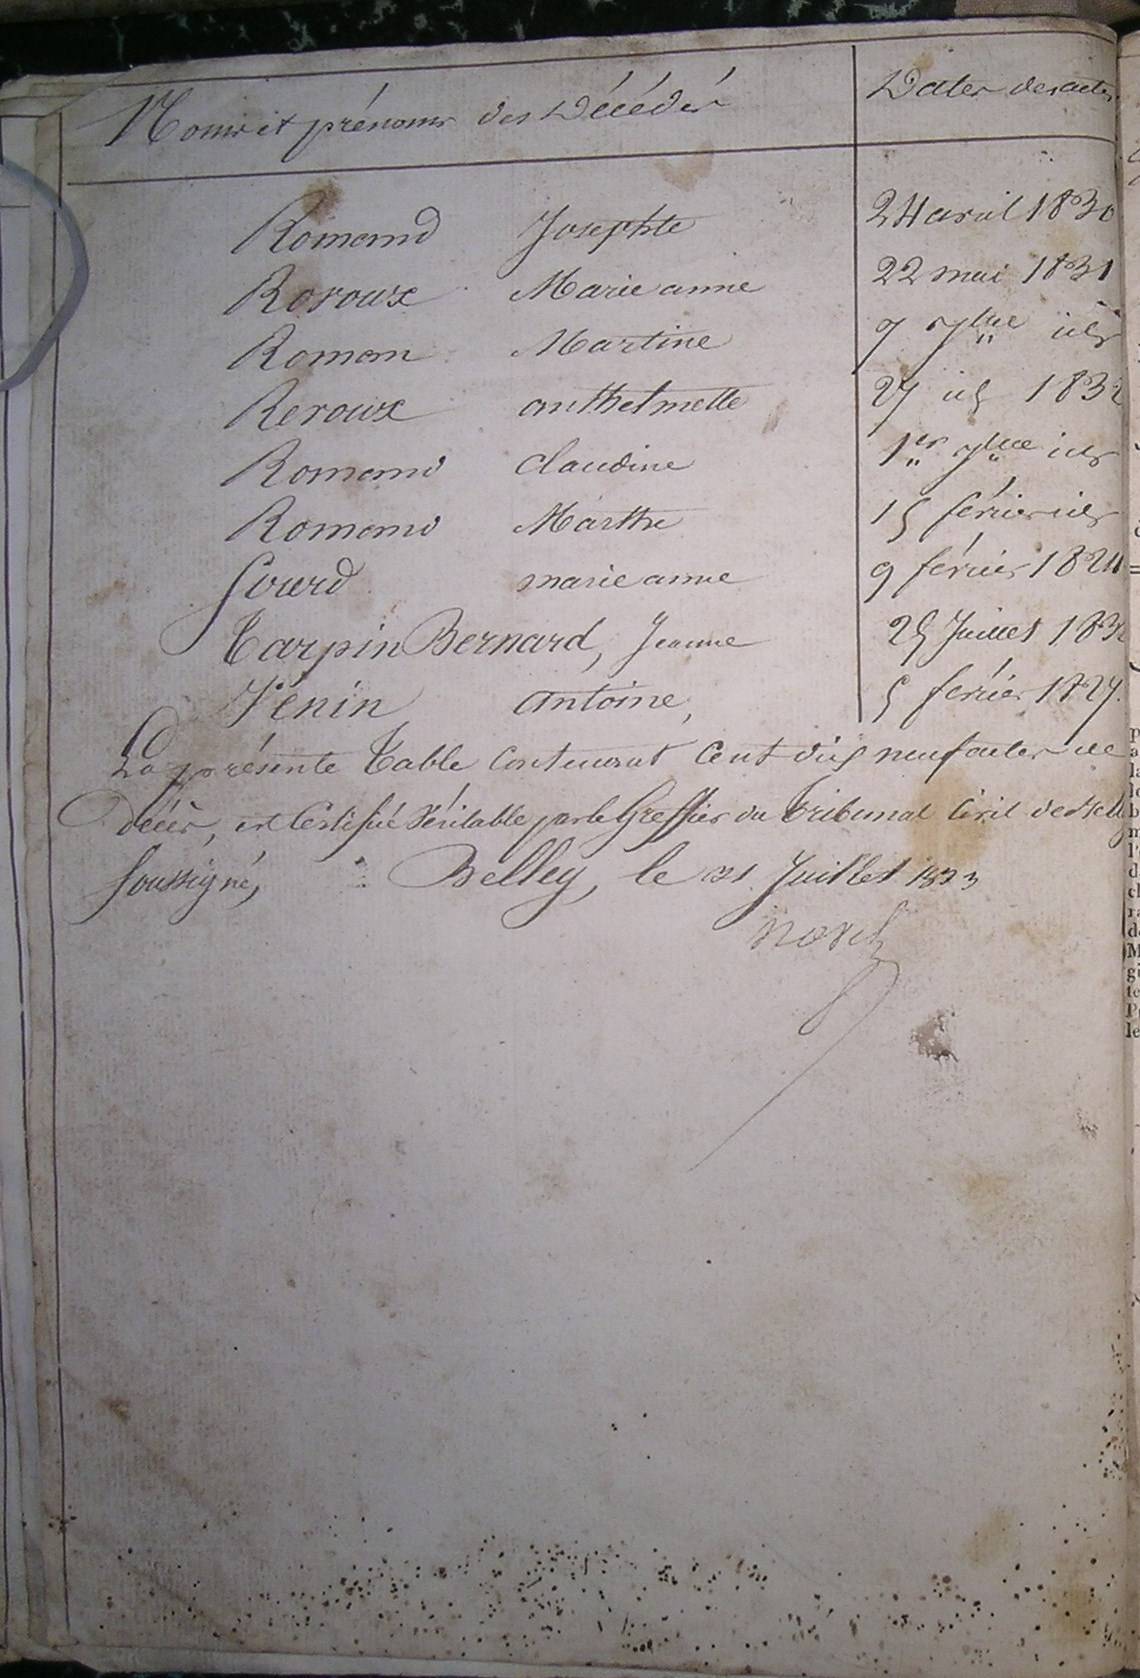 Noms et prénoms des Décédés Dates des actes
Romand Josephte 24 avril 1830
Roroux Marie anne 22 mai 1831
Roman Martine 9 id
Reroux anthelmette 27 id 1832
Romand Claudine 1er id
Romand Marthe 15 férier id
Sourd marie anne 9 férier 1824
Tarpin Bernard, Jeanne 25 Juillet 183
Vénin antoine, 5 ferier 1827.
La présente Table Contenant Cent dix neuf actes de
décès, est Certifié Véritable par le Greffier du tribunal Civil de
Soussigné, Belley, le 31 Juillet 1833